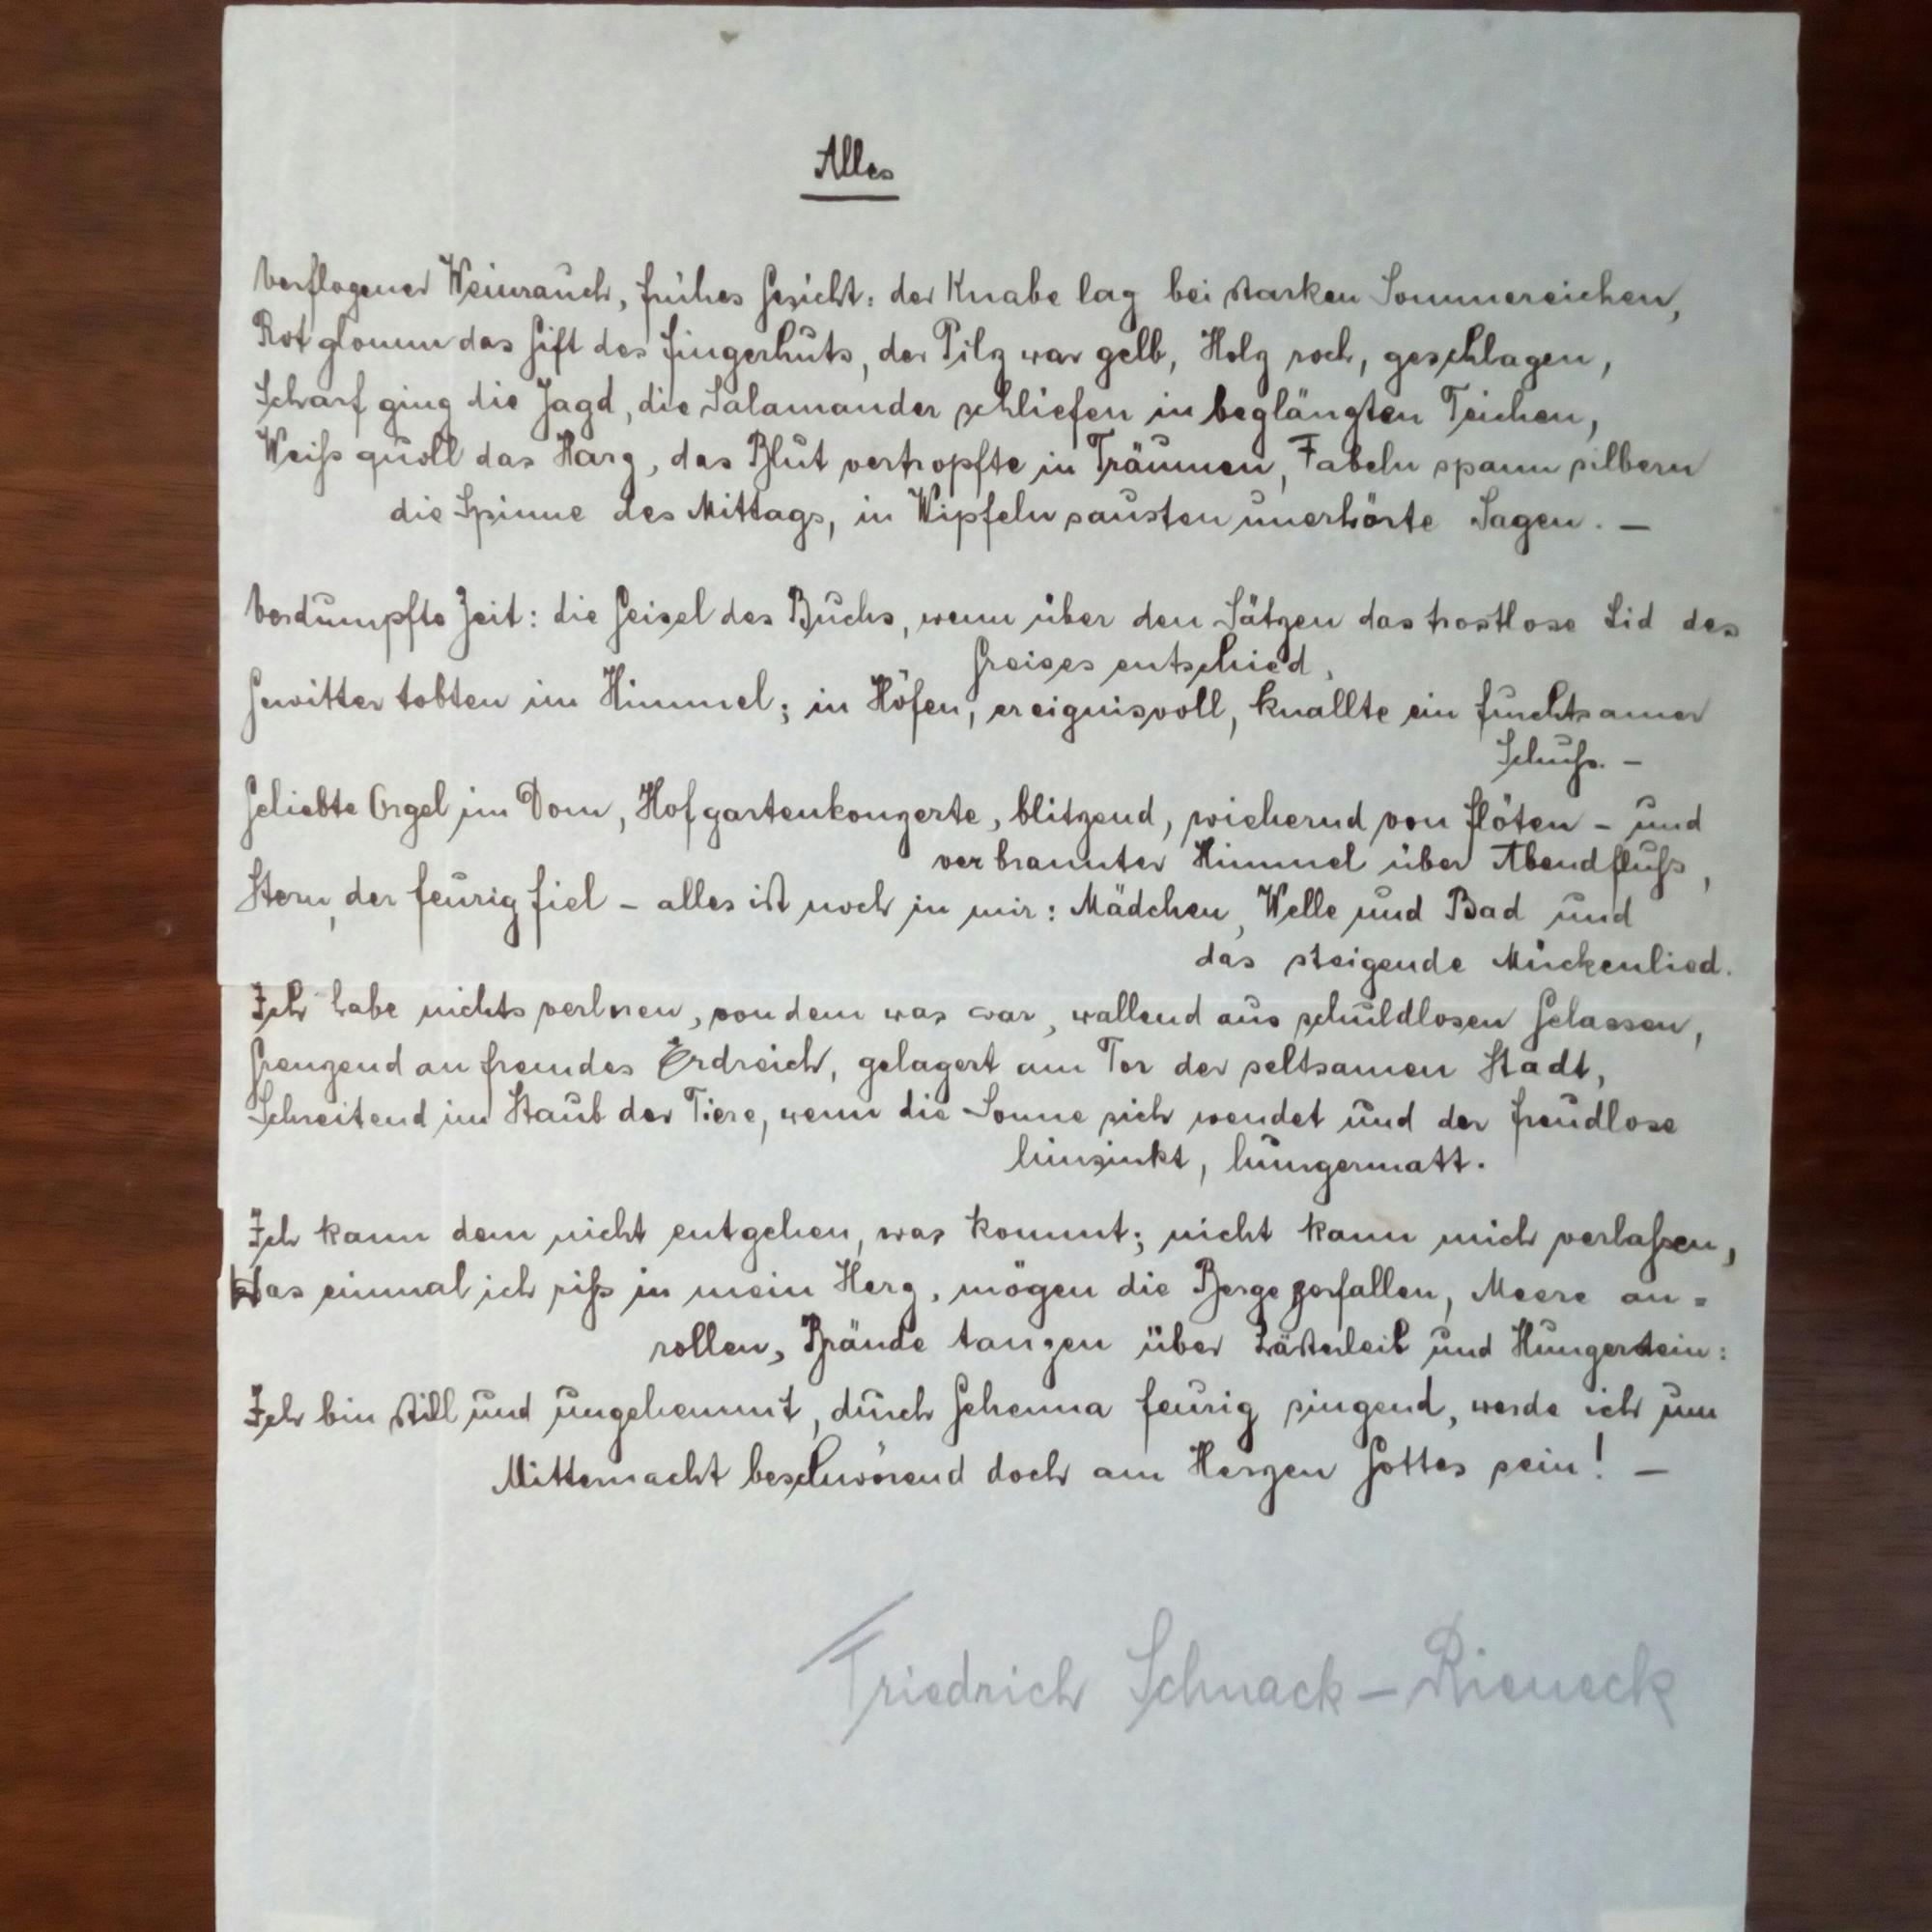 Alles
Verflogener Weinrauch, frühes Gesicht: der Knabe lag bei starken Sommereichen,
Rot glomm das Gift des Fingerhuts, der Pilz war gelb, Holz roch, geschlagen,
Scharf ging die Jagd, die Salamander schliefen in beglänzten Teichen,
Weiß quoll das Harz, das Blut vertropfte in Träumen, Fabeln spann silbern
die Spinne des Mittags, in Wipfeln sausten unerhörte Sagen. —
Verdumpfte Zeit: die Geisel des Buchs, wenn über den Sätzen das trostlose Lid des
Greises entschied,
Gewitter tobten im Himmel; in Höfen, ereignisvoll, knallte ein furchtsamer
Schuß. —
Geliebte Orgel im Dom, Hofgartenkonzerte, blitzend, wiehernd von Flöten – und
verbrannter Himmel über Abendfluß,
Stern, der feurig fiel – alles ist noch in mir: Mädchen, Welle und Bad und
das steigende Mückenlied.
Ich habe nichts verloren, von dem was war, wallend aus schuldlosen Gelassen,
Grenzend an fremdes Erdreich, gelagert am Tor der seltsamen Stadt,
Schreitend im Staub der Tiere, wenn die Sonne sich wendet und der Freudlose
hinsinkt, hungermatt.
Ich kann dem nicht entgehen, was kommt; nicht kann mich verlaßen,
Was einmal ich riß in mein Herz, mögen die Berge zerfallen, Meere an=
rollen, Brände tanzen über Lästerleib und Hungerstein:
Ich bin still und ungehemmt, durch Gehenna feurig singend, werde ich um
Mitternacht beschwörend doch am Herzen Gottes sein! —
Friedrich Schnack – Rieneck